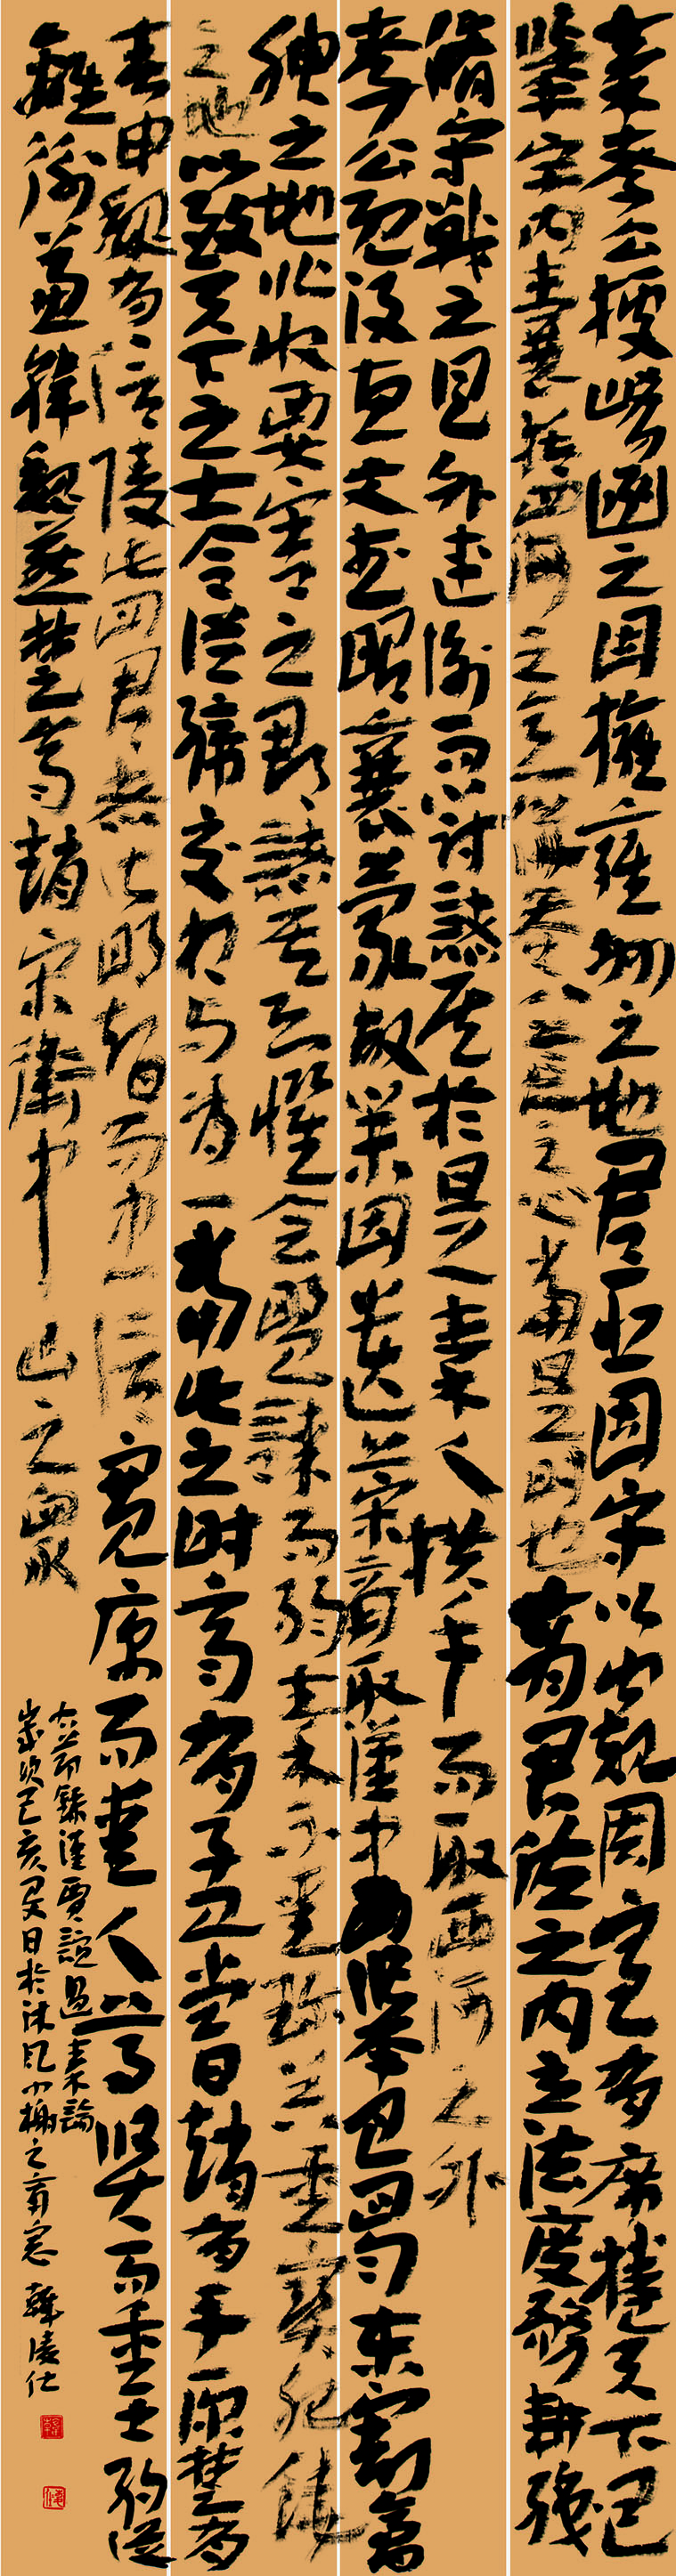 秦孝公據崤函之固擁雍州之地君臣固守以窺周室有席捲天下包
舉宇內囊括四海之意併吞八荒之心當是之時也商君佐之內立法度務耕織
脩守戰之具外連衡而鬥諸侯於是秦人拱手而取西河之外
孝公既沒惠文武昭襄蒙故業因遺策南取漢中西舉巴蜀東割膏
腴之地北收要害之郡諸侯恐懼會盟謀而弱秦不愛珍器重寶肥饒
之地以致天下之士合從締交相與為一當此之時齊有孟嘗趙有平原楚有
春申魏有信陵此四君者皆明智而忠信寬厚而愛人尊賢而重士約從
離衡兼韓魏燕楚齊趙宋衛中山之眾
右節錄漢賈誼過秦論
歲次己亥夏日於沐風小榭之南窗 韓陵仕